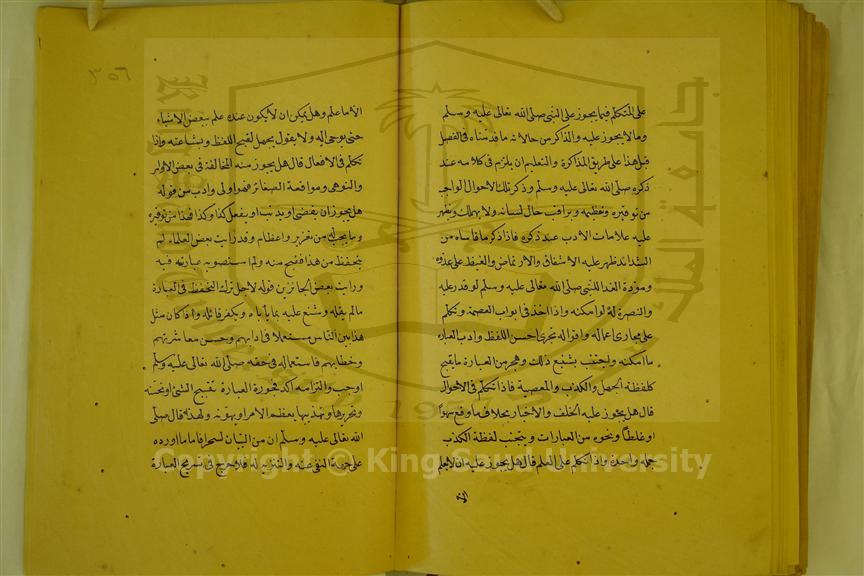 على المتكلم فيما يجوز على النبي صلى الله تعالى عليه وسلم
وما لا يجوز عليه والذاكر من حالاته ما قدمناه في الفصل
قبل هذا على طريق المذاكرة والتعليم ان يلتزم في كلامه عند
ذكره صلى الله تعالى عليه وسلم وذكر تلك الاحوال الواجب
من توقيره وتعظيمه ويراقب حال لسانه ولا يهمله ويظهر
عليه علامات الادب عند ذكره فاذا ذكر ما قاساه من
الشدائد ظهر عليه الاشفاق والارتماض والغيظ على عدوه
ومودة الفداء للنبي صلى الله تعالى عليه وسلم لو قدر عليه
والنصرة له لو امكنه واذا اخذ في ابواب العصمة وتكلم
على مجاري اعماله واقواله تحرى احسن اللفظ وادب العبارة
ما امكنه واجتنب بشيع ذلك وهجر من العبارة ما يقبح
كلفظة الجهل والكذب والمعصية فاذا تكلم في الاقوال
قال هل يجوز عليه الخلف والاخبار بخلاف ما وقع سهوا
او غلطا ونحوه من العبارات ويتجنب لفظة الكذب
جملة واحدة واذا تكلم على العلم قال هل يجوز عليه ان لا يعلم
الا
٣٥٦
الا ما علم وهل يمكن ان لا يكون عنده علم ببعض الاشياء
حتى يوحى اليه ولا يقول بجهل لقبح اللفظ وبشاعته واذا
تكلم في الافعال قال هل يجوز منه المخالفة في بعض الاوامر
والنواهي ومواقعة الصغائر فهو اولى وادب من قوله
هل يجوز ان يعصي او يذنب او يفعل كذا وكذا فهذا من توقيره
وما يجب له من تعزير واعظام وقد رايت بعض العلماء لم
يتحفظ من هذا فقبح منه ولم استصوب عبارته فيه
ورايت بعض الجائرين قوله لاجل ترك التحفظ في العبارة
ما لم يقله وشنع عليه بما ياباه ويكفر قائله واذا كان مثل
هذا بين الناس مستعملا في ادابهم وحسن معاشرتهم
وخطابهم فاستعماله في حقه صلى الله تعالى عليه وسلم
اوجب والتزامه اكد فجودة العبارة تقبح الشئ او تحسنه
وتحريرها وتهذيبها يعظم الامر او يهونه ولهذا قال صلى
الله تعالى عليه وسلم ان من البيان لسحرا فاما ما اورده
على جهة النفي عنه والتنزيه له فلا حرج في تسريح العبارة
جامعة الملك
King Saud University
1957
Copyright © King Saud University